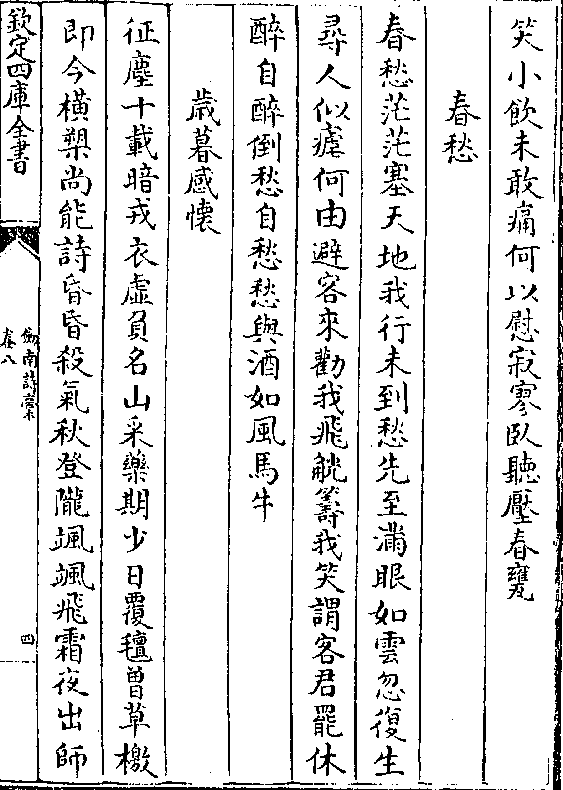 笑小飲未敢痛何以慰寂寥臥聽壓春甕
春愁
春愁茫茫塞天地我行未到愁先至滿眼如雲忽復生
尋人似瘧何由避客來勸我飛觥籌我笑謂客君罷休
醉自醉倒愁自愁愁與酒如風馬牛
歲暮感懷
征塵十載暗戎衣虛負名山采藥期少日覆氊曽草檄
即今橫槊尚能詩昏昏殺氣秋登隴颯颯飛霜夜出師
欽定四庫全書
劍南詩藁
卷八
四